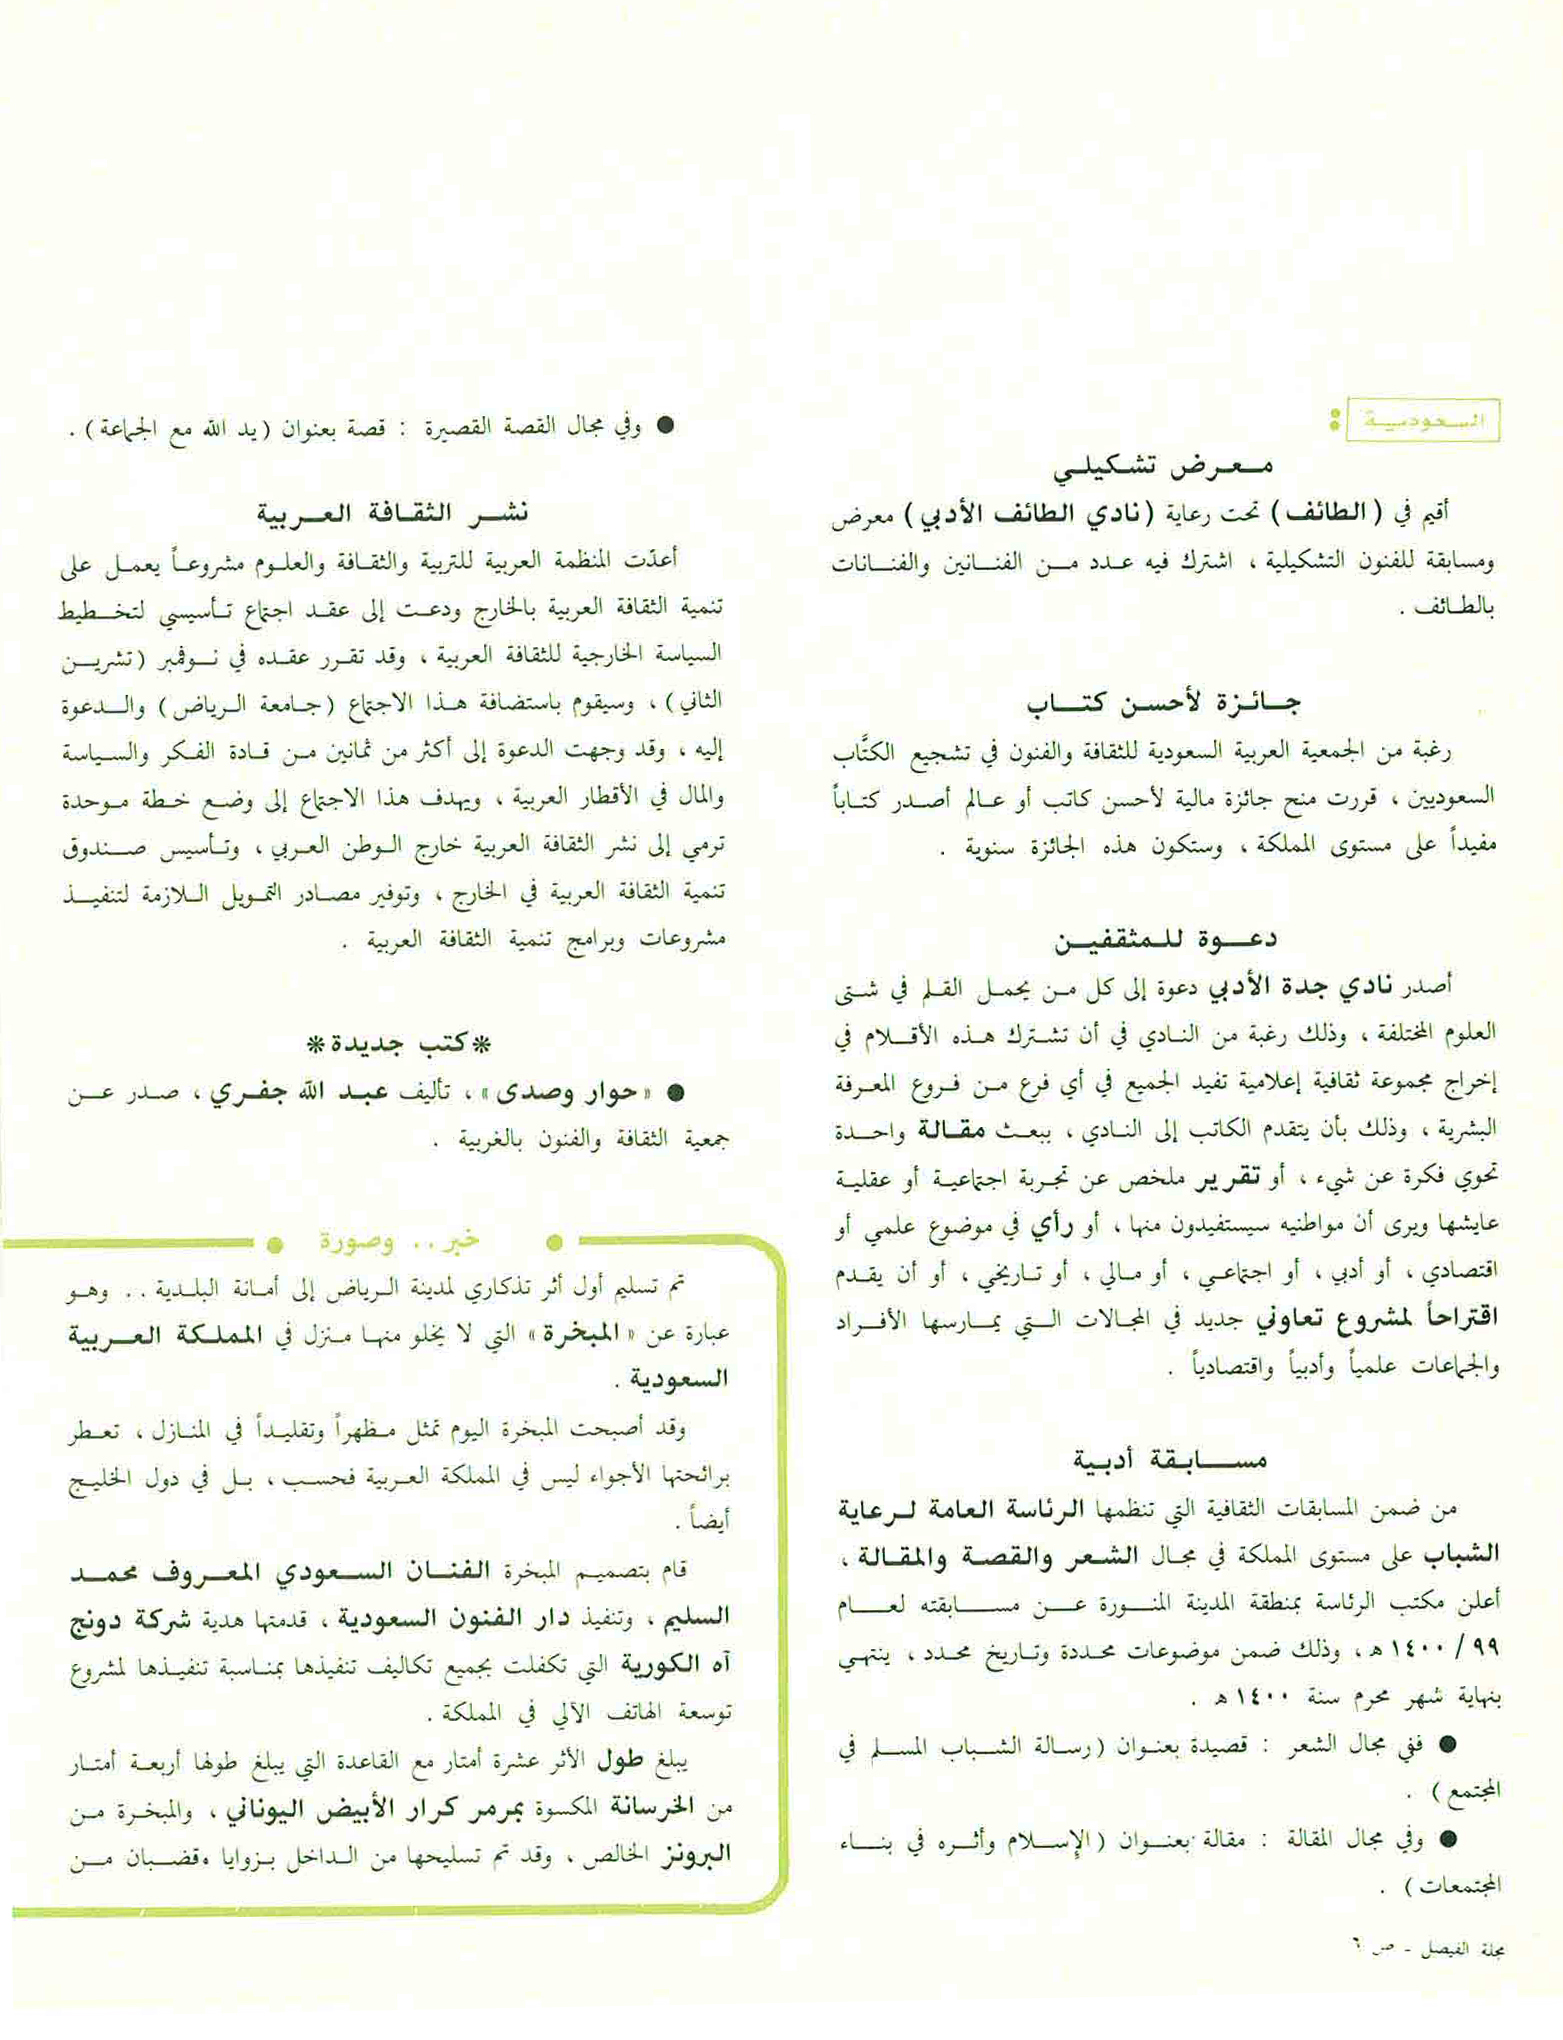 السعودية :
معرض تشكيلي
أقيم في (الطائف) تحت رعاية (نادي الطائف الأدبي) معرض
ومسابقة للفنون التشكيلية ، اشترك فيه عدد من الفنانين والفنانات
بالطائف .
جائزة لأحسن كتاب
رغبة من الجمعية العربية السعودية للثقافة والفنون في تشجيع الكتَّاب
السعوديين ، قررت منح جائزة مالية لأحسن كاتب أو عالم أصدر كتاباً
مفيداً على مستوى المملكة ، وستكون هذه الجائزة سنوية .
دعوة للمثقفين
أصدر نادي جدة الأدبي دعوة إلى كل من يحمل القلم في شتى
العلوم المختلفة ، وذلك رغبة من النادي في أن تشترك هذه الأقلام في
إخراج مجموعة ثقافية إعلامية تفيد الجميع في أي فرع من فروع المعرفة
البشرية ، وذلك بأن يتقدم الكاتب إلى النادي ، ببعث مقالة واحدة
تحوي فكرة عن شيء ، أو تقرير ملخص عن تجربة اجتماعية أو عقلية
عايشها ويرى أن مواطنيه سيستفيدون منها ، أو رأي في موضوع علمي أو
اقتصادي ، أو أدبي ، أو اجتماعي ، أو مالي ، أو تاريخي ، أو أن يقدم
اقتراحاً لمشروع تعاوني جديد في المجالات التي يمارسها الأفراد
والجماعات علمياً وأدبياً واقتصادياً .
مسابقة أدبية
من ضمن المسابقات الثقافية التي تنظمها الرئاسة العامة لرعاية
الشباب على مستوى المملكة في مجال الشعر والقصة والمقالة ،
أعلن مكتب الرئاسة بمنطقة المدينة المنورة عن مسابقته لعام
٩٩/ ١٤٠٠ هـ ، وذلك ضمن موضوعات محددة وتاريخ محدد ، ينتهي
بنهاية شهر محرم سنة ١٤٠٠ هـ .
● ففي مجال الشعر : قصيدة بعنوان (رسالة الشباب المسلم في
المجتمع) .
● وفي مجال المقالة : مقالة بعنوان (الإسلام وأثره في بناء
المجتمعات) .
● وفي مجال القصة القصيرة : قصة بعنوان (يد الله مع الجماعة) .
نشر الثقافة العربية
أعدّت المنظمة العربية للتربية والثقافة والعلوم مشروعاً يعمل على
تنمية الثقافة العربية بالخارج ودعت إلى عقد اجتماع تأسيسي لتخطيط
السياسة الخارجية للثقافة العربية ، وقد تقرر عقده في نوفمبر (تشرين
الثاني) ، وسيقوم باستضافة هذا الاجتماع (جامعة الرياض) والدعوة
إليه ، وقد وجهت الدعوة إلى أكثر من ثمانين من قادة الفكر والسياسة
والمال في الأقطار العربية ، ويهدف هذا الاجتماع إلى وضع خطة موحدة
ترمي إلى نشر الثقافة العربية خارج الوطن العربي ، وتأسيس صندوق
تنمية الثقافة العربية في الخارج ، وتوفير مصادر التمويل اللازمة لتنفيذ
مشروعات وبرامج تنمية الثقافة العربية .
* كتب جديدة *
● «حوار وصدى» ، تأليف عبد الله جفري ، صدر عن
جمعية الثقافة والفنون بالغربية .
● خبر .. وصورة ●
تم تسليم أول أثر تذكاري لمدينة الرياض إلى أمانة البلدية .. وهو
عبارة عن «المبخرة» التي لا يخلو منها منزل في المملكة العربية
السعودية .
وقد أصبحت المبخرة اليوم تمثل مظهراً وتقليداً في المنازل ، تعطر
برائحتها الأجواء ليس في المملكة العربية فحسب ، بل في دول الخليج
أيضاً .
قام بتصميم المبخرة الفنان السعودي المعروف محمد
السليم ، وتنفيذ دار الفنون السعودية ، قدمتها هدية شركة دونج
آه الكورية التي تكفلت بجميع تكاليف تنفيذها بمناسبة تنفيذها لمشروع
توسعة الهاتف الآلي في المملكة .
يبلغ طول الأثر عشرة أمتار مع القاعدة التي يبلغ طولها أربعة أمتار
من الخرسانة المكسوة بمرمر كرار الأبيض اليوناني ، والمبخرة من
البرونز الخالص ، وقد تم تسليحها من الداخل بزوايا وقضبان من
مجلة الفيصل - ص ٦